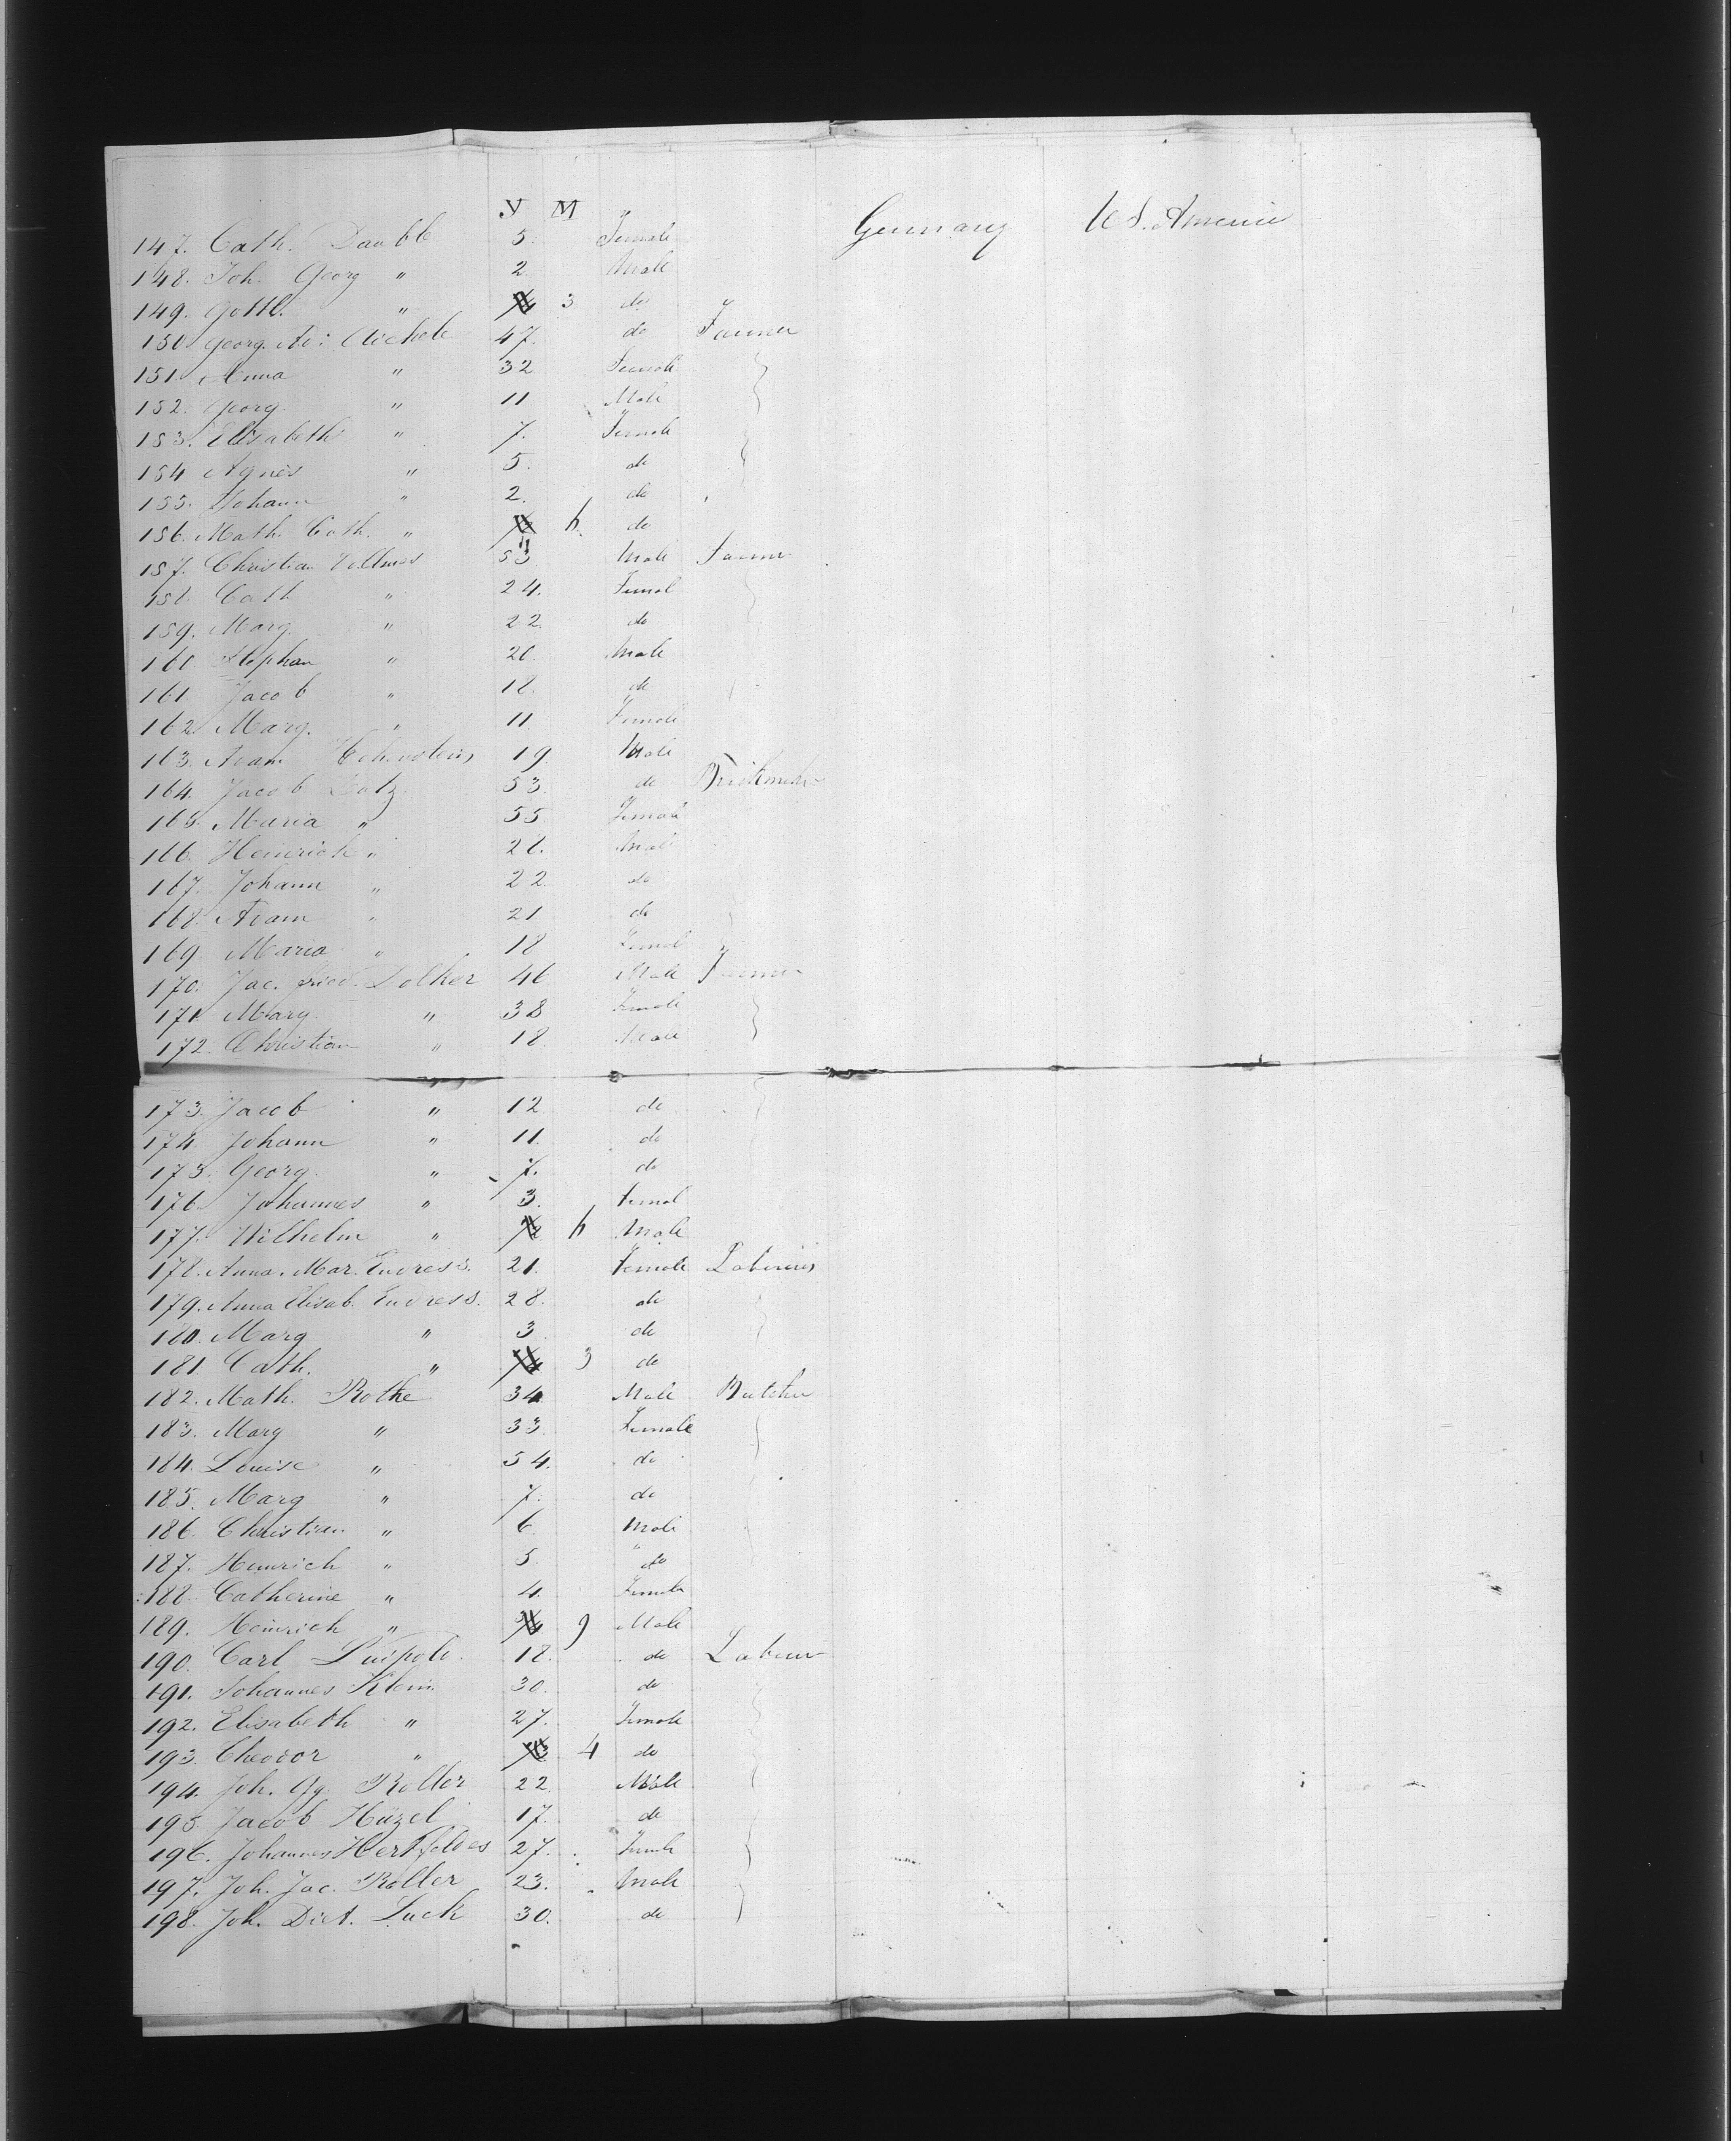 Y M
147. Cath. Daubb 5. Female Germany U S. America
148. Joh. Georg " 2 Male
149. Gottl. " 3 do
150 Georg Ad: Aichele 47. do Farmer
151. Anna " 32 Female
152. Georg " 11 Male
153. Elisabeth " 7. Female
154 Agnes " 5. do
155. Johann " 2. do
156. Math. Cath. " 6. do
157. Christian Vollmer 53 Male Farmer
158. Cath " 24. Femal
159. Marg. " 22. do
160 Stephan " 20. Male
161 Jacob " 18. do
162 Marg. " 11 Female
163. Adam 19. Male
164. Jacob Lotz 53. do Brickmaker
165. Maria " 55 Female
166. Heinrich " 28. Male
167. Johann " 22. do
168. Adam " 21 do
169 Maria " 18 Femal
170. Jac. Fried. Dolker 46 Male Farmer
171. Marg. " 38 Female
172. Christian " 18. Male
173. Jacob " 12 do
174. Johann " 11. do
175. Georg. " 7. do
176. Johannes " 3. Femal
177. Wilhelm " 6 Male
178. Anna. Mar. Endress. 21. Female
179. Anna Elisab. Endress. 28. do
180. Marg " 3 do
181. Cath. " 3 do
182. Math. Rothe 34 Male Butcher
183. Marg " 33 Female
184. Louise " 54. do
185. Marg " 7. do
186. Christian " 6. Male
187. Heinrich " 5. do
188. Catherine " 4. Female
189. Heinrich " 9 Male
190. Carl Luipold. 18. do Labour
191. Johannes Klein 30. do
192. Elisabeth " 27. Female
193. Theodor " 4 do
194. Joh. Gg. Roller 22. Male
195. Jacob Hüzel 17. do
196. Johannes 27. Female
197. Joh. Jac. Roller 23. Male
198. Joh. Diet. Luck 30. do